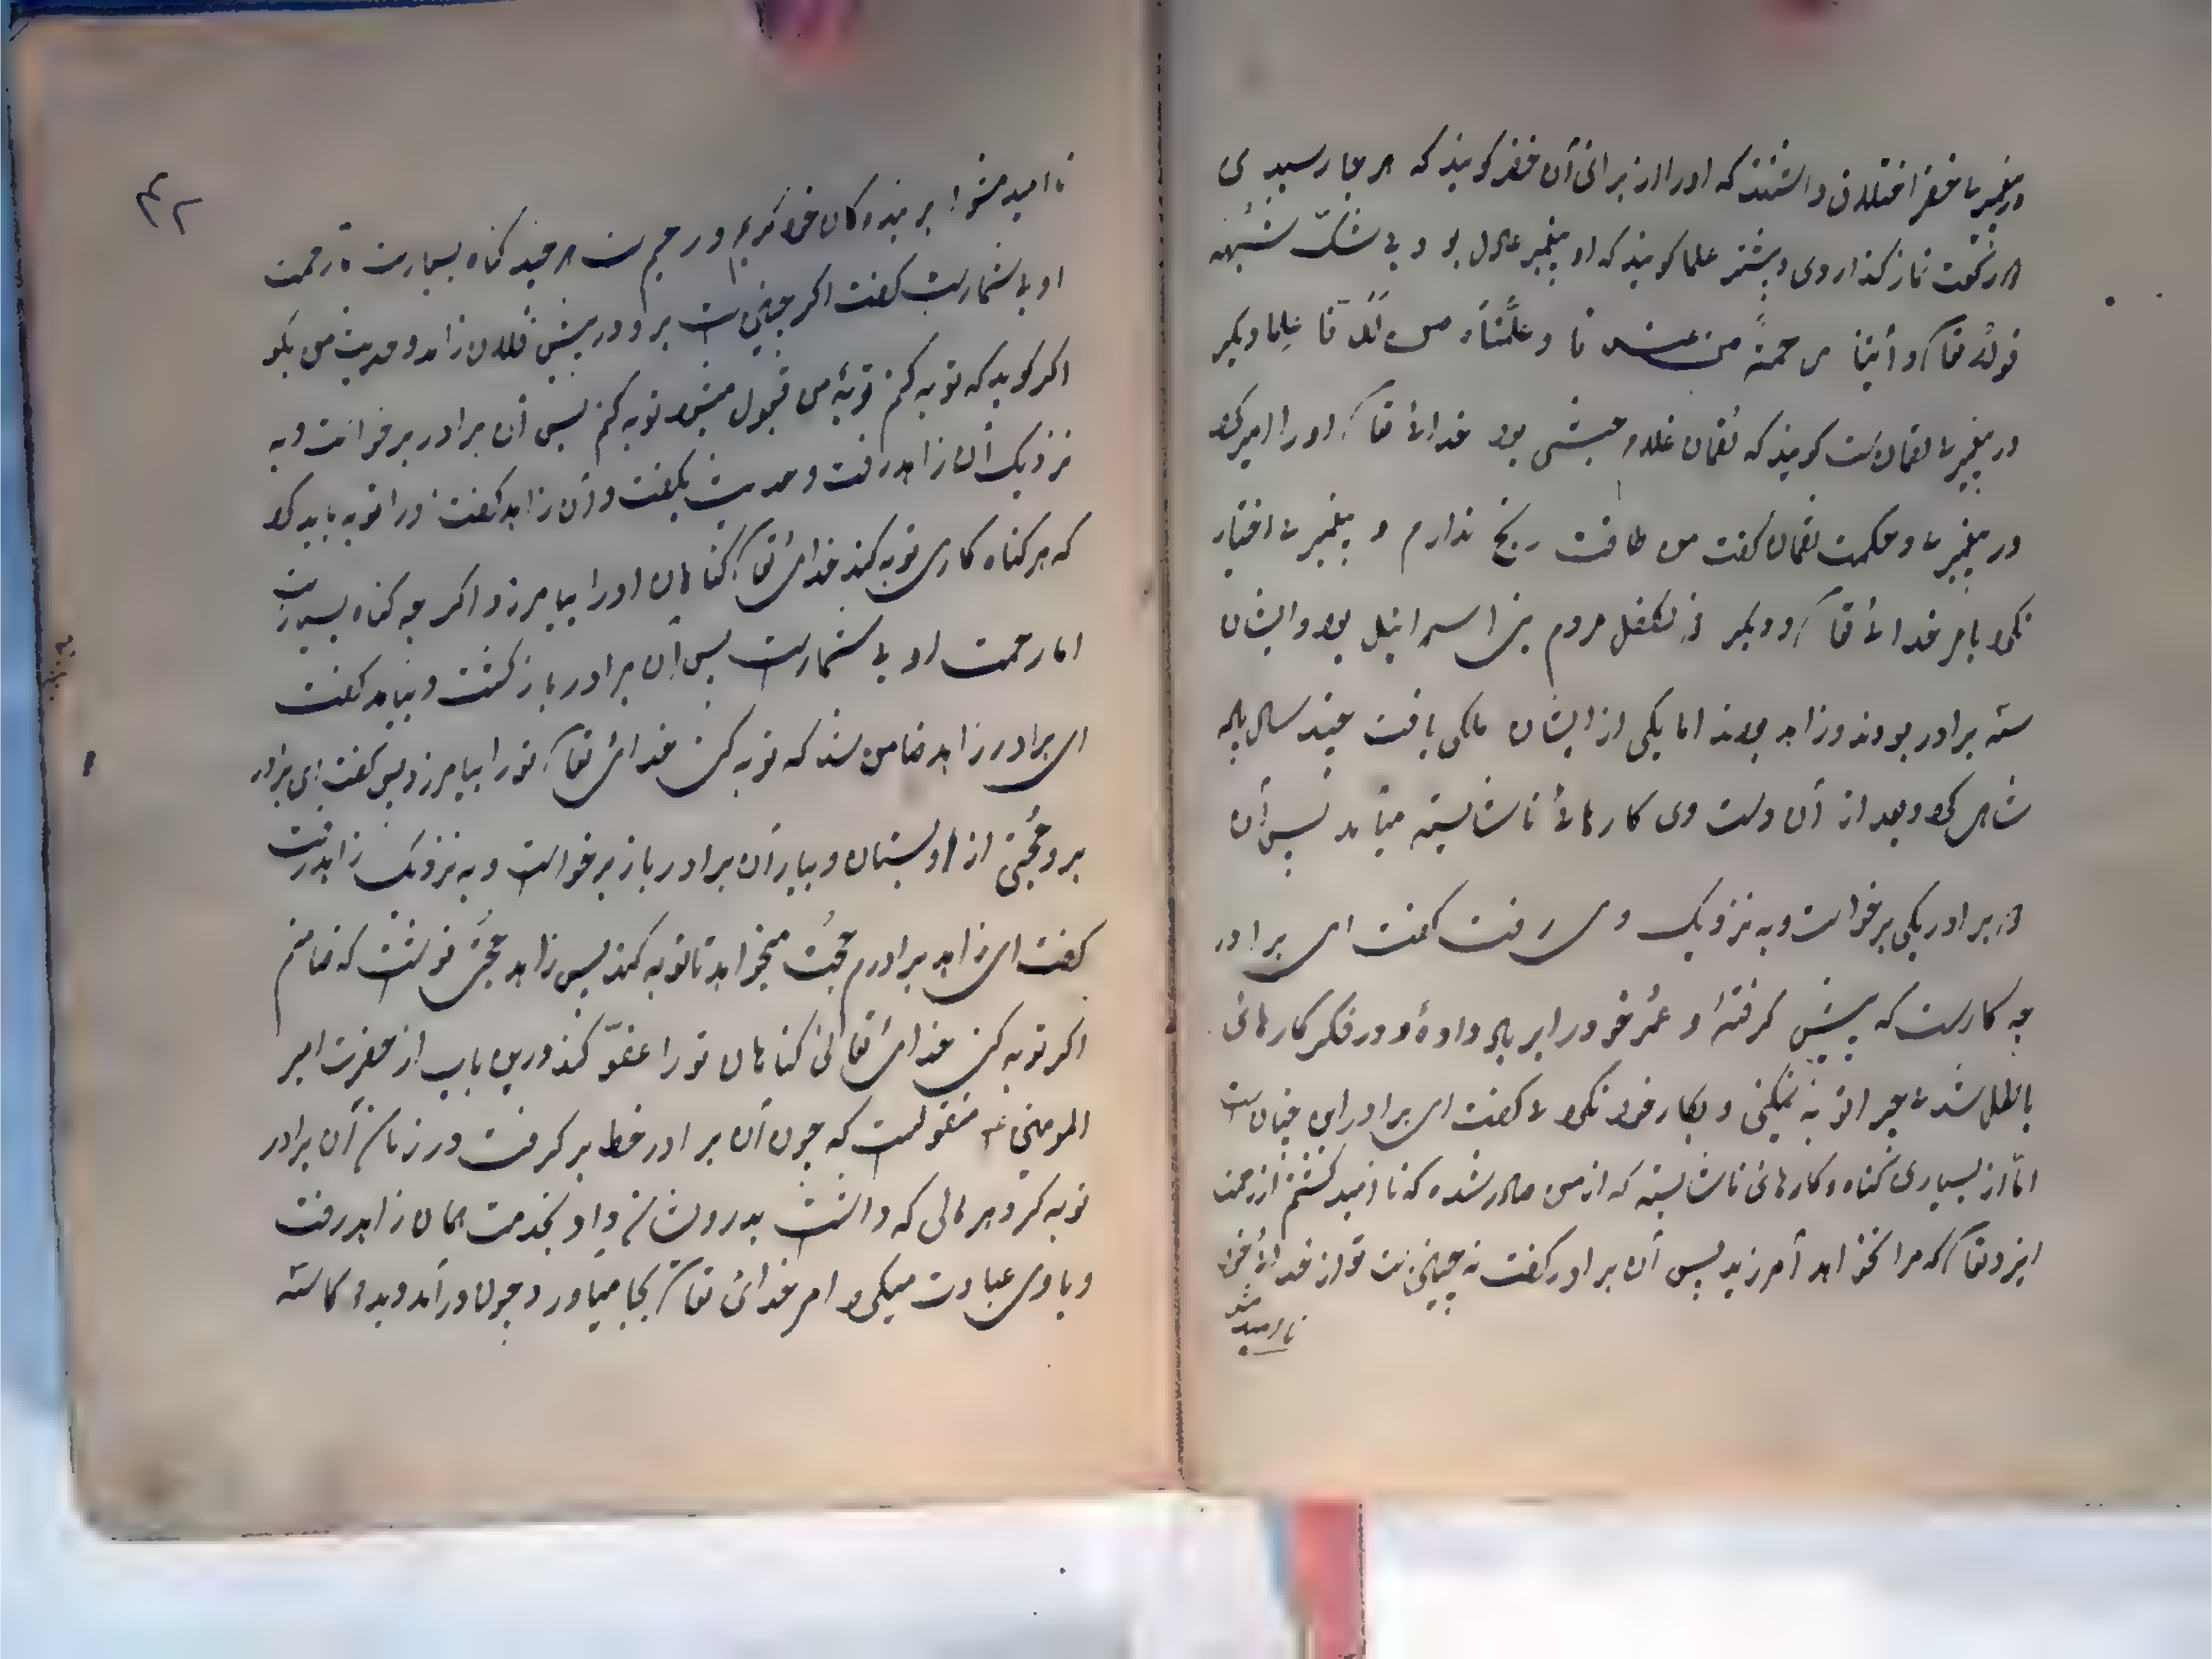 در پیغمبری خضر اختلاف داشتند که اورا از برای آن خضر گویند که هر جا رسیدی
دو رکعت نماز گذاردی و بیشتر علما گویند که او پیغمبر عادل بود و بی شک شبهه
قوله تعا و آتیناه رحمةً من عندنا و علّمناه من لدنّا علما و دیگر
در پیغمبری لقمانست گویند که لقمان غلام حبشی بود خدای تعا اورا امیر کرد
در پیغمبری و حکمت لقمان گفت من طاقت رنج ندارم و پیغمبری اختیار
نکرد بامر خدای تعا و دیگر ذلکفل مردم بنی اسرائیل بود و ایشان
سه برادر بودند و زاهد بودند اما یکی از ایشان ملکی یافت چند سال پاد
شاهی کرد و بعد از آن دست وی کارهای ناشایسته میآمد پس آن
دو برادر یکی برخواست و به نزدیک وی رفت گفت ای برادر
چه کارست که پیش گرفتهٔ و عمر خود را بر باد دادهٔ و در فکر کارهای
باطل شدی چرا توبه نمیکنی و بکار خود نکردی گفت ای برادر این چنان است
امّا از بسیاری گناه و کارهای ناشایسته که از من صادر شده که نا امید گشتم از رحمت
ایزد تعا که مرا نخواهد آمرزید پس آن برادر گفت نه چنین است تو از خدای خود
نا امید مشو
۴۲
نا امید مشو بر بندهگان خود کریم و رحیم است هر چند گناه بسیارست تا رحمت
او بی شمارست گفت اگر چنین است برو در پیش فلان زاهد و حدیث من بگو
اگر گوید که توبه کنم توبهٔ من قبول میشود توبه کنم پس آن برادر برخواست و به
نزدیک آن زاهد رفت و حدیث بگفت و آن زاهد گفت اورا توبه باید کرد
که هر گناه کاری توبه کند خدای تعا گناهان اورا بیامرزد اگر چه گناه بسیارست
اما رحمت او بی شمارست پس آن برادر بازگشت و بیامد گفت
ای برادر زاهد ضامن شد که توبه کن خدای تعا تورا بیامرزد پس گفت ای برادر
برو حجّتی از او بستان و بیار آن برادر باز برخواست و به نزدیک زاهد رفت
گفت ای زاهد برادرم حجت میخواهد تا توبه کند پس زاهد حجتی نوشت که ضامنم
اگر توبه کن خدای تعالی گناهان تورا عفوّ کند و درین باب از حضرت امیر
المومنین ع منقولست که چون آن برادر خط بر گرفت در زمان آن برادر
توبه کرد هر مالی که داشت بدرویشان داد و بخدمت همان زاهد رفت
و با وی عبادت میکرد امر خدای تعا بجا میآورد و چون در آمد و بدو کاسته